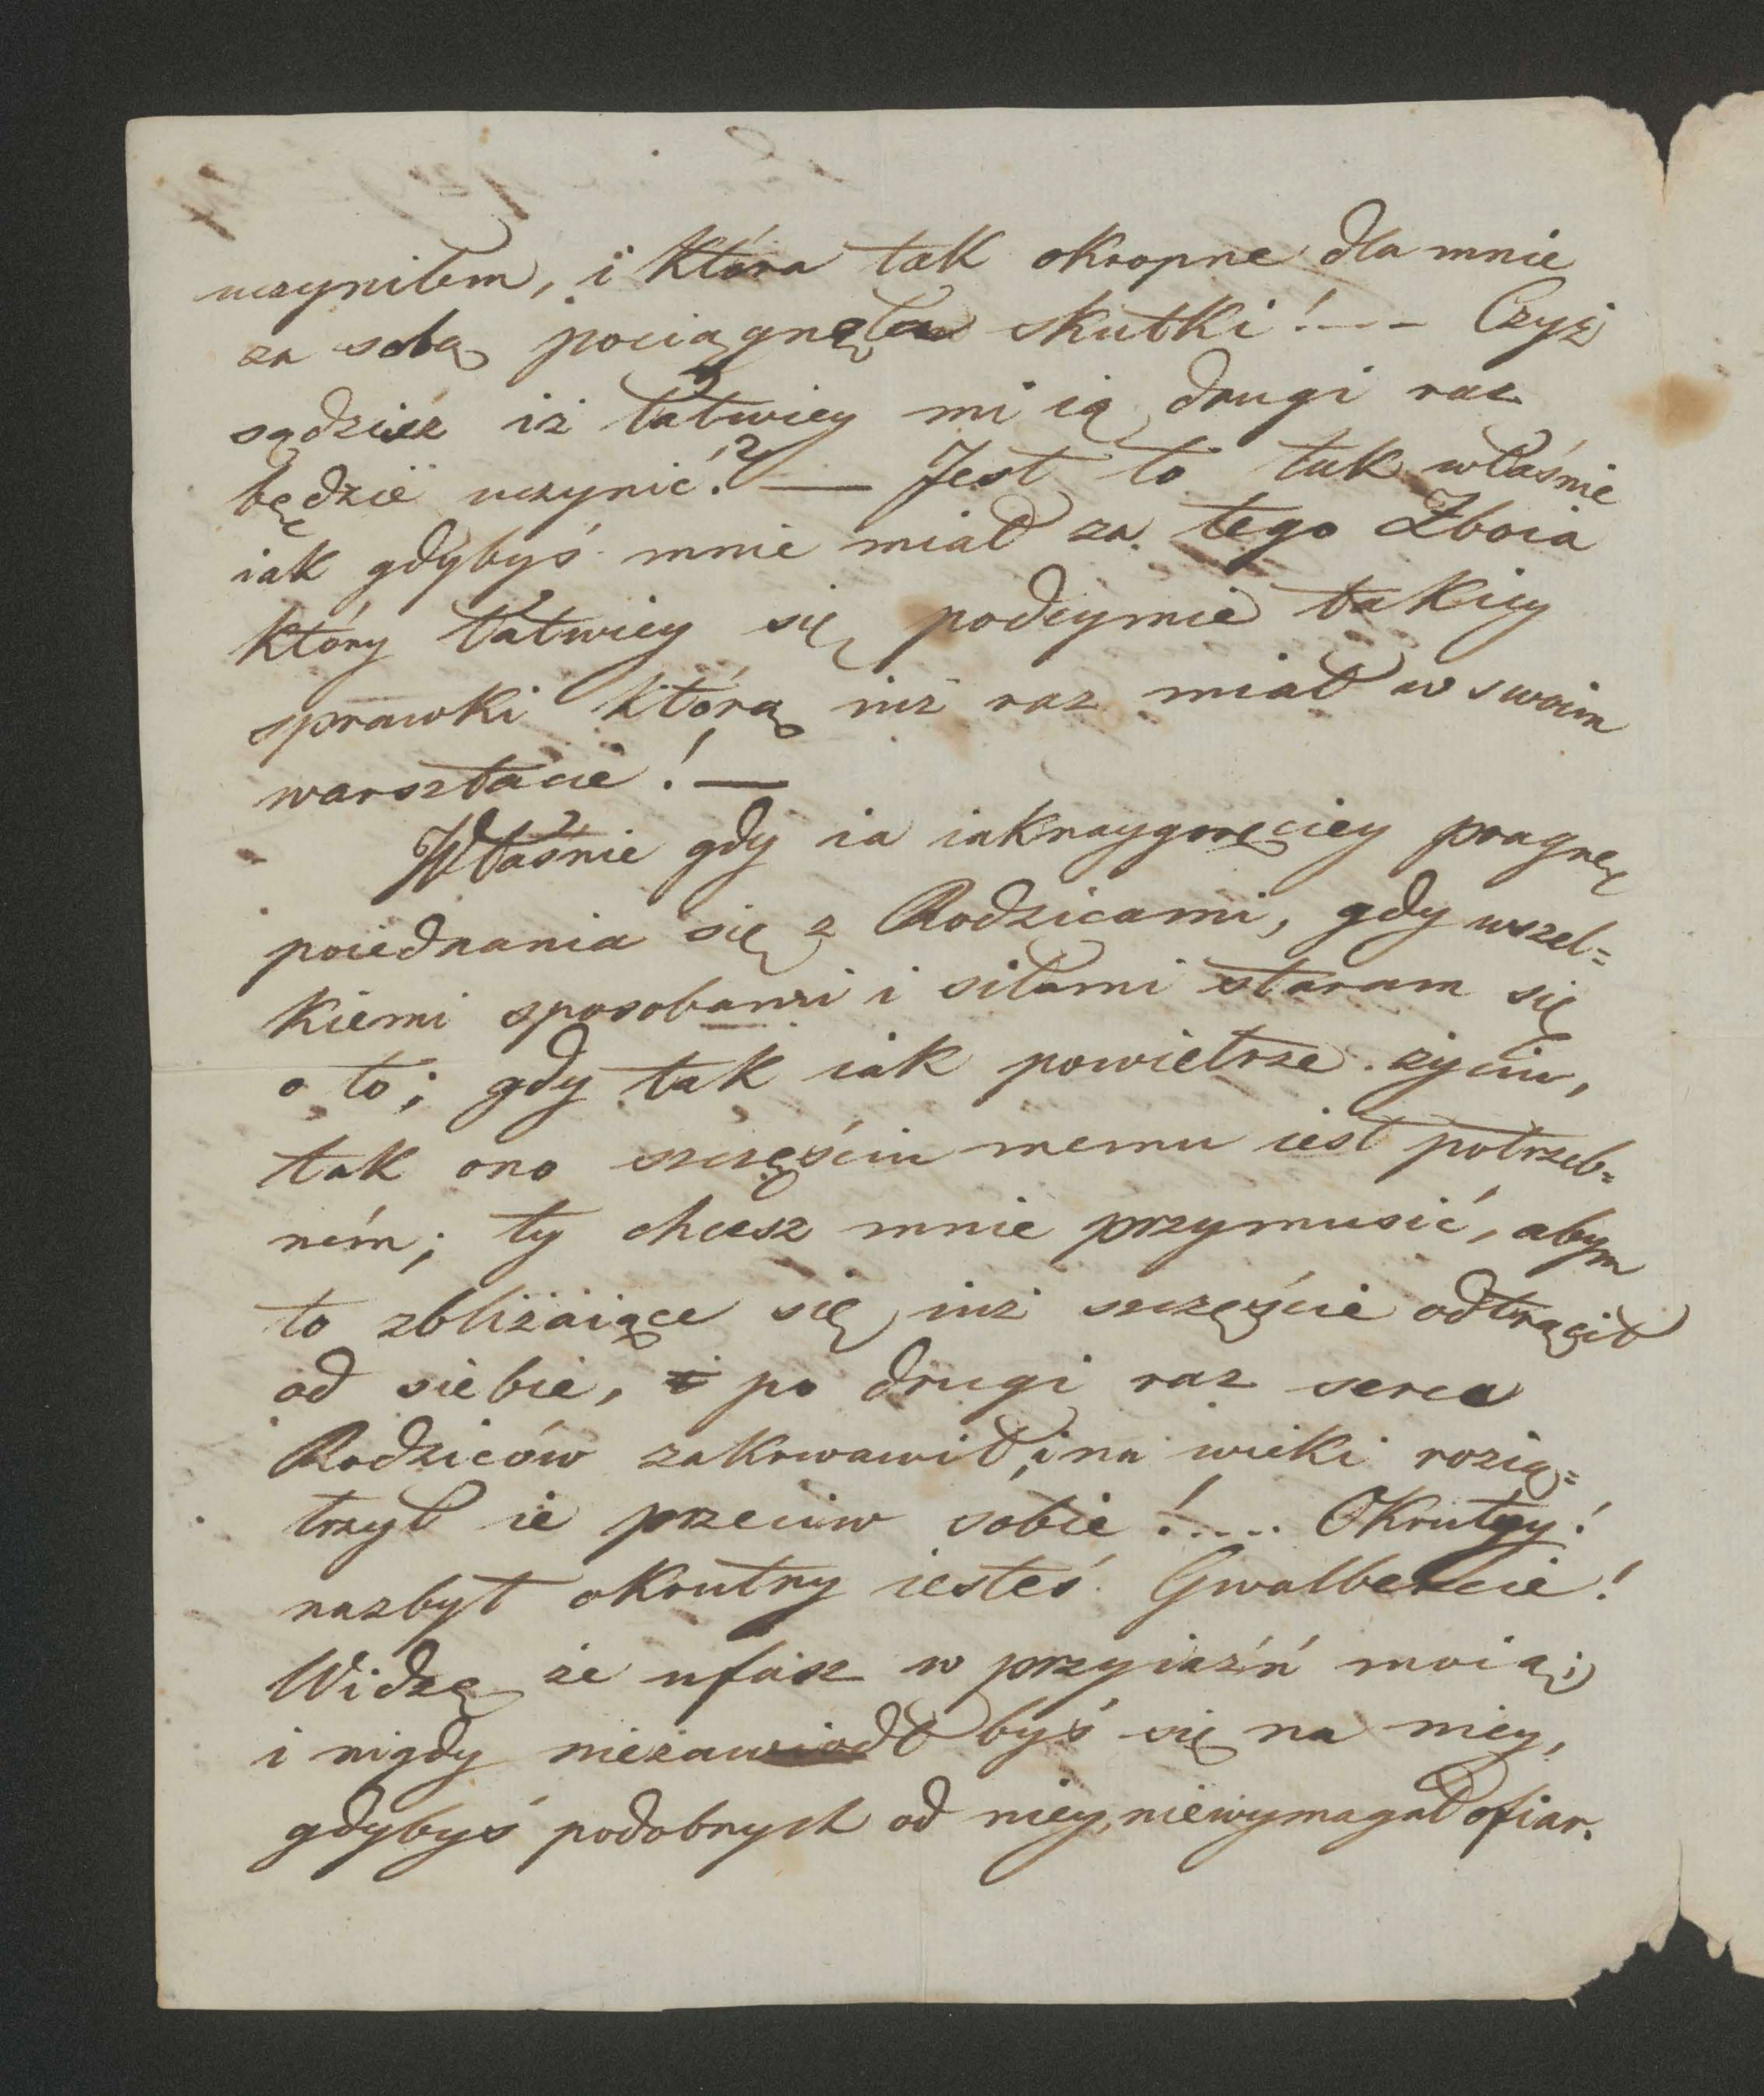 uczyniłem, i która tak okropne dla mnie
za sobą pociągnęła skutki! - - - Czyż
sądzisz iż łatwiey mi ią drugi raz
będzie uczynić? — Jest to tak właśnie
iak gdybyś mnie miał za tego Zboia
który łatwiey się podeymie takiey
sprawki którą iuż raz miał w swoim
warsztacie! —
Właśnie gdy ia iaknaygoręciey pragnę
poiednania się z Rodzicami, gdy wszel=
kiemi sposobami i siłami staram się
o to; gdy tak iak powietrze życiu,
tak ono szczęściu memu iest potrzeb=
ném; ty chcesz mnie przymusić, abym
to zbliżaiące się iuż szczęście odtrącił
od siebie, po drugi raz serca
Rodziców zakrwawił, i na wieki rozią=
trzył ie przeciw sobie! .... Okrutny!
nazbyt okrutny iesteś Gwalbercie!
Widzę że ufasz w przyiaźń moią;
i nigdy niezawiodł byś się na niey,
gdybyś podobnych od niey, niewymagał ofiar.